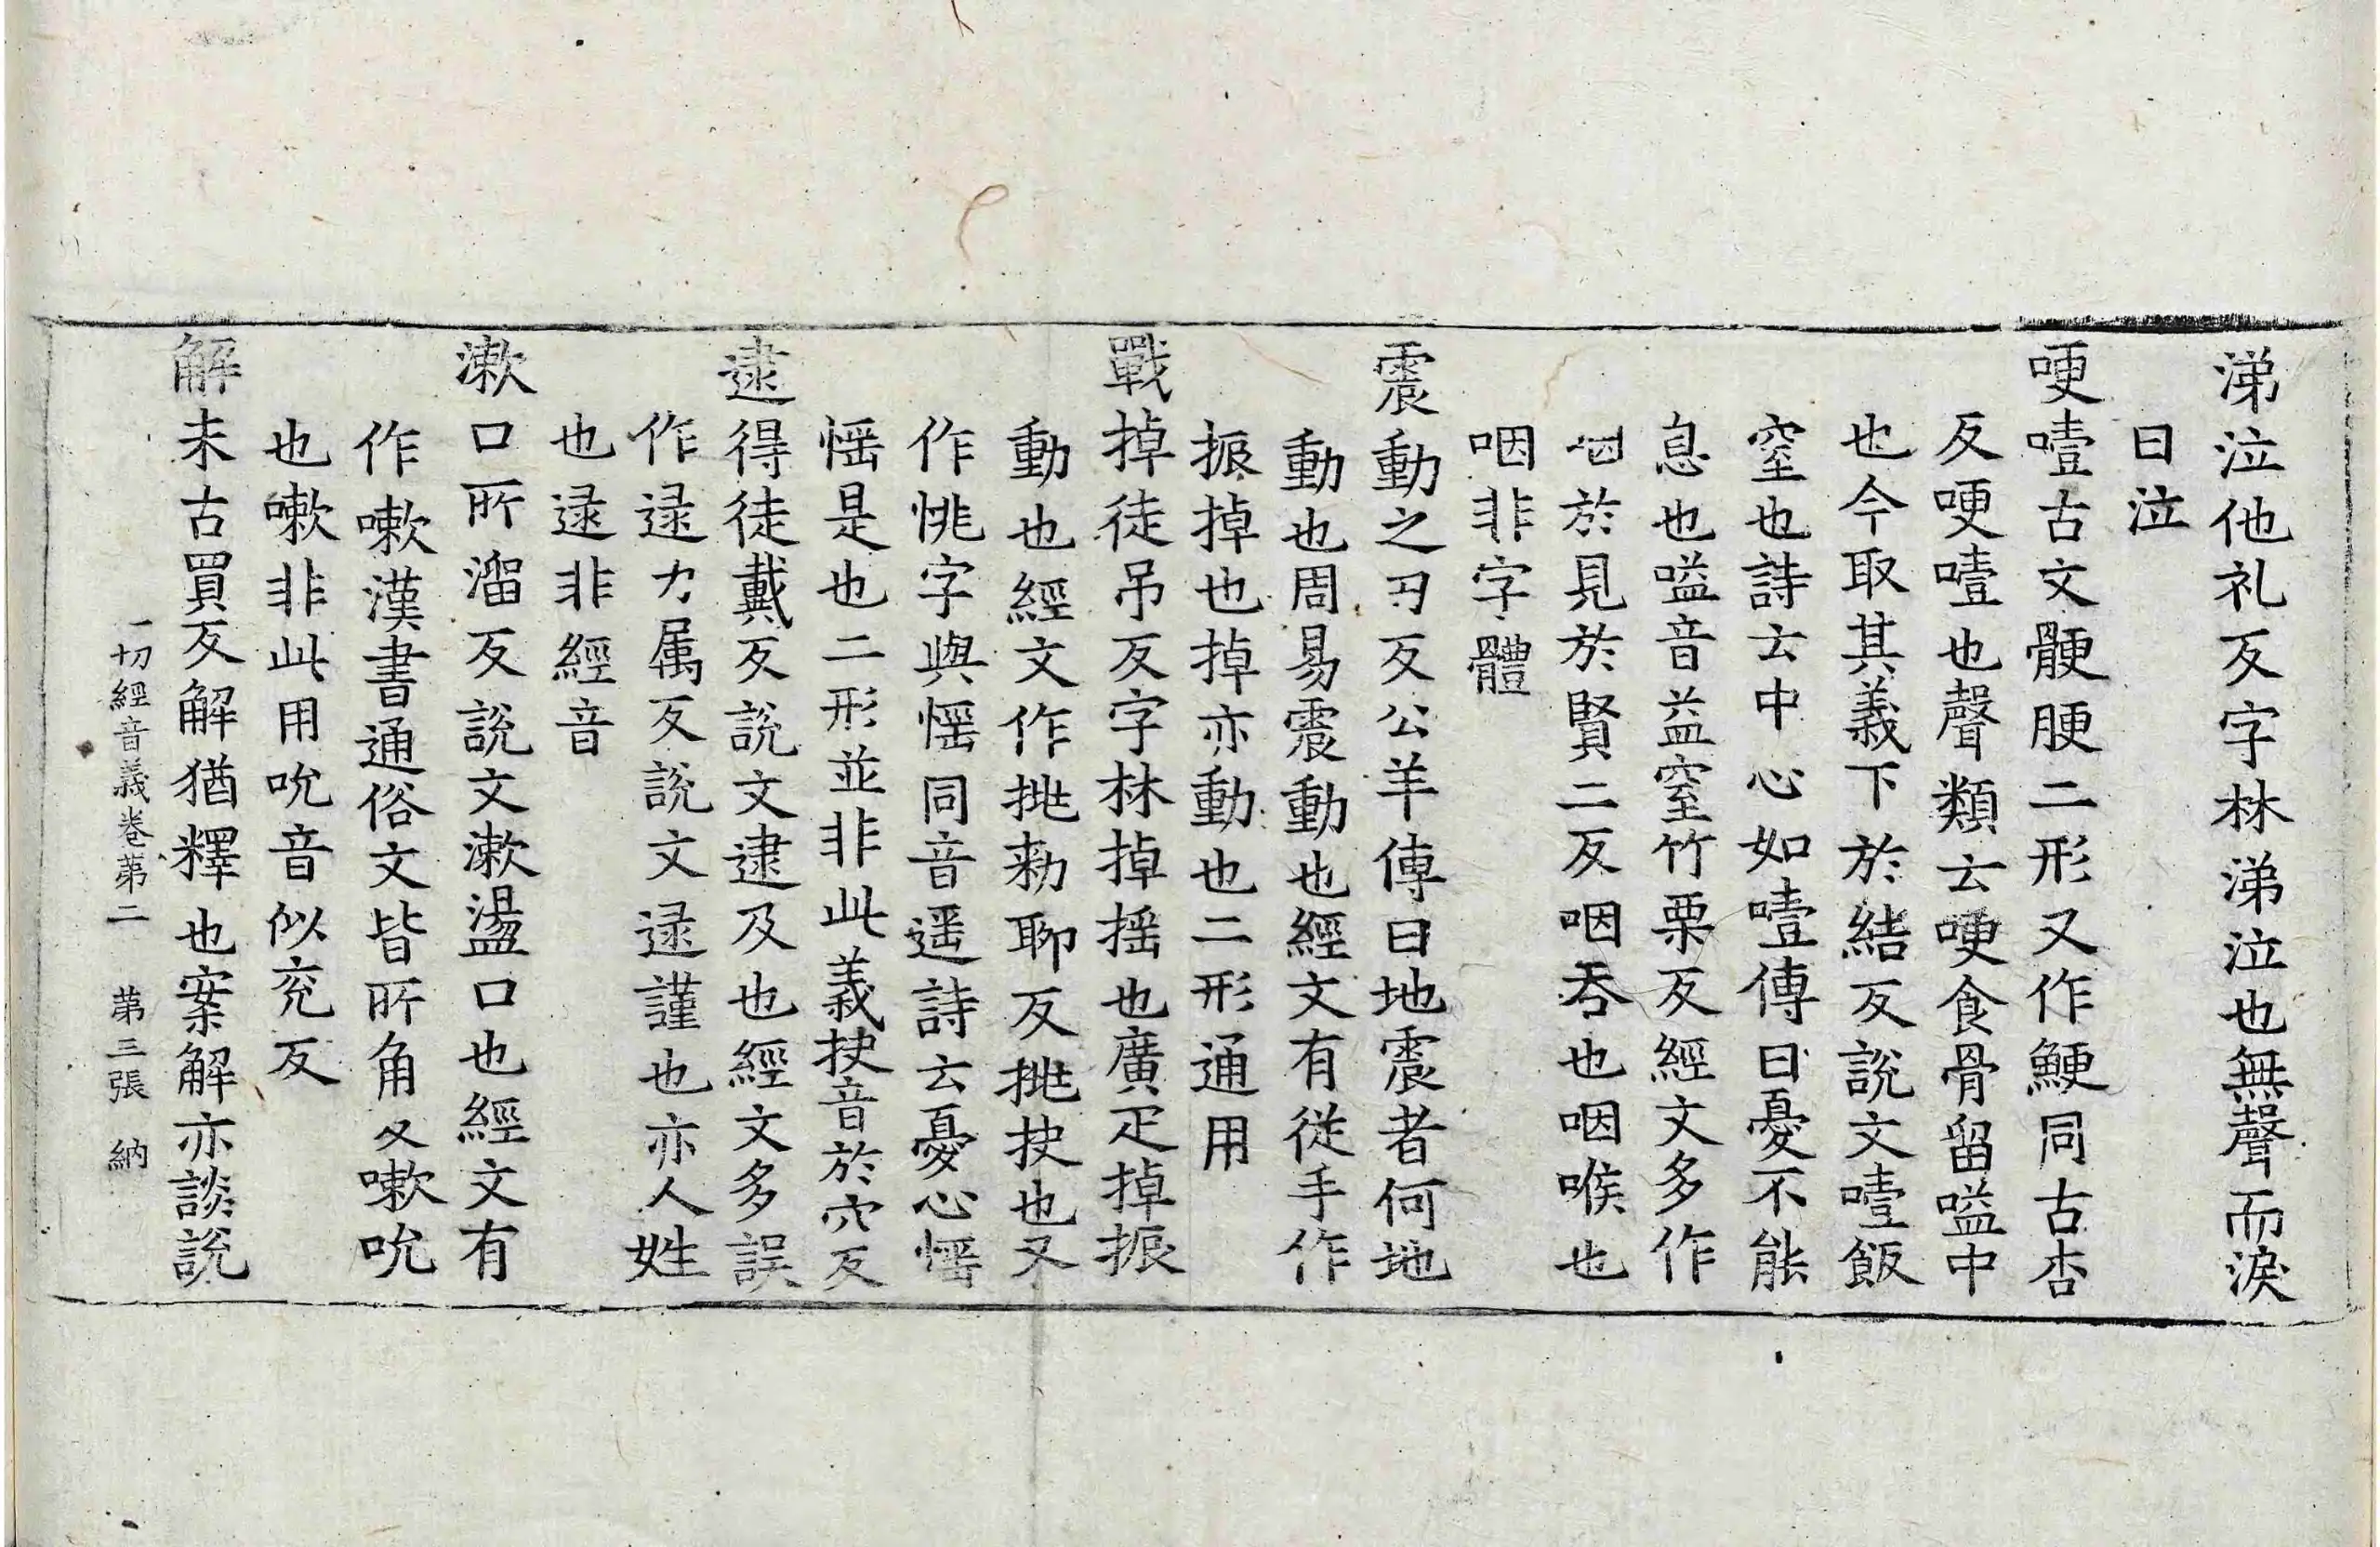 涕泣他礼反字林涕泣也無聲而淚
曰泣
哽噎古文骾腰二形又作鯁同古杏
反哽噎也聲類云哽食骨留嗌中
也今取其義下於結反說文噎飯
窒也詩云中心如噎傳曰憂不能
息也嗌音益窒竹栗反經文多作
咽於見於賢二反咽吞也咽喉也
咽非字體
震動之刃反公羊傳曰地震者何地
動也周易震動也經文有從手作
振掉也掉亦動也二形通用
戰掉徒吊反字林掉搖也廣疋掉振
動也經文作挑勑聊反挑抉也又
作恌字與愮同音遥詩云憂心愮
愮是也二形並非此義抉音於穴反
逮得徒戴反說文逮及也經文多誤
作逯力属反說文逯謹也亦人姓
也逯非經音
漱口所溜反說文漱盪口也經文有
作嗽漢書通俗文皆所角反嗽吮
也嗽非此用吮音似兖反
解未古買反解猶釋也案解亦談說
一切經音義卷第二 第三張 納